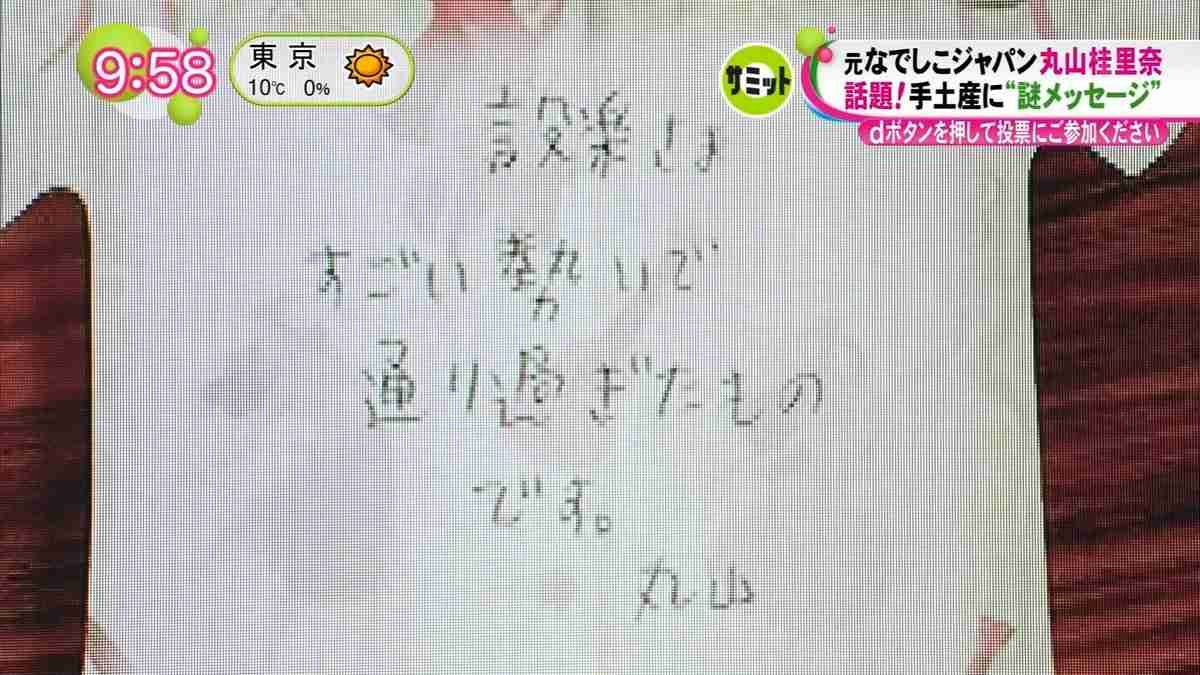 9:58
東京
10℃ 0%
サミット
元なでしこジャパン丸山桂里奈
話題!手土産に“謎メッセージ”
dボタンを押して投票にご参加ください
設楽さま
すごい勢いで
通り過ぎたもの
です。
丸山